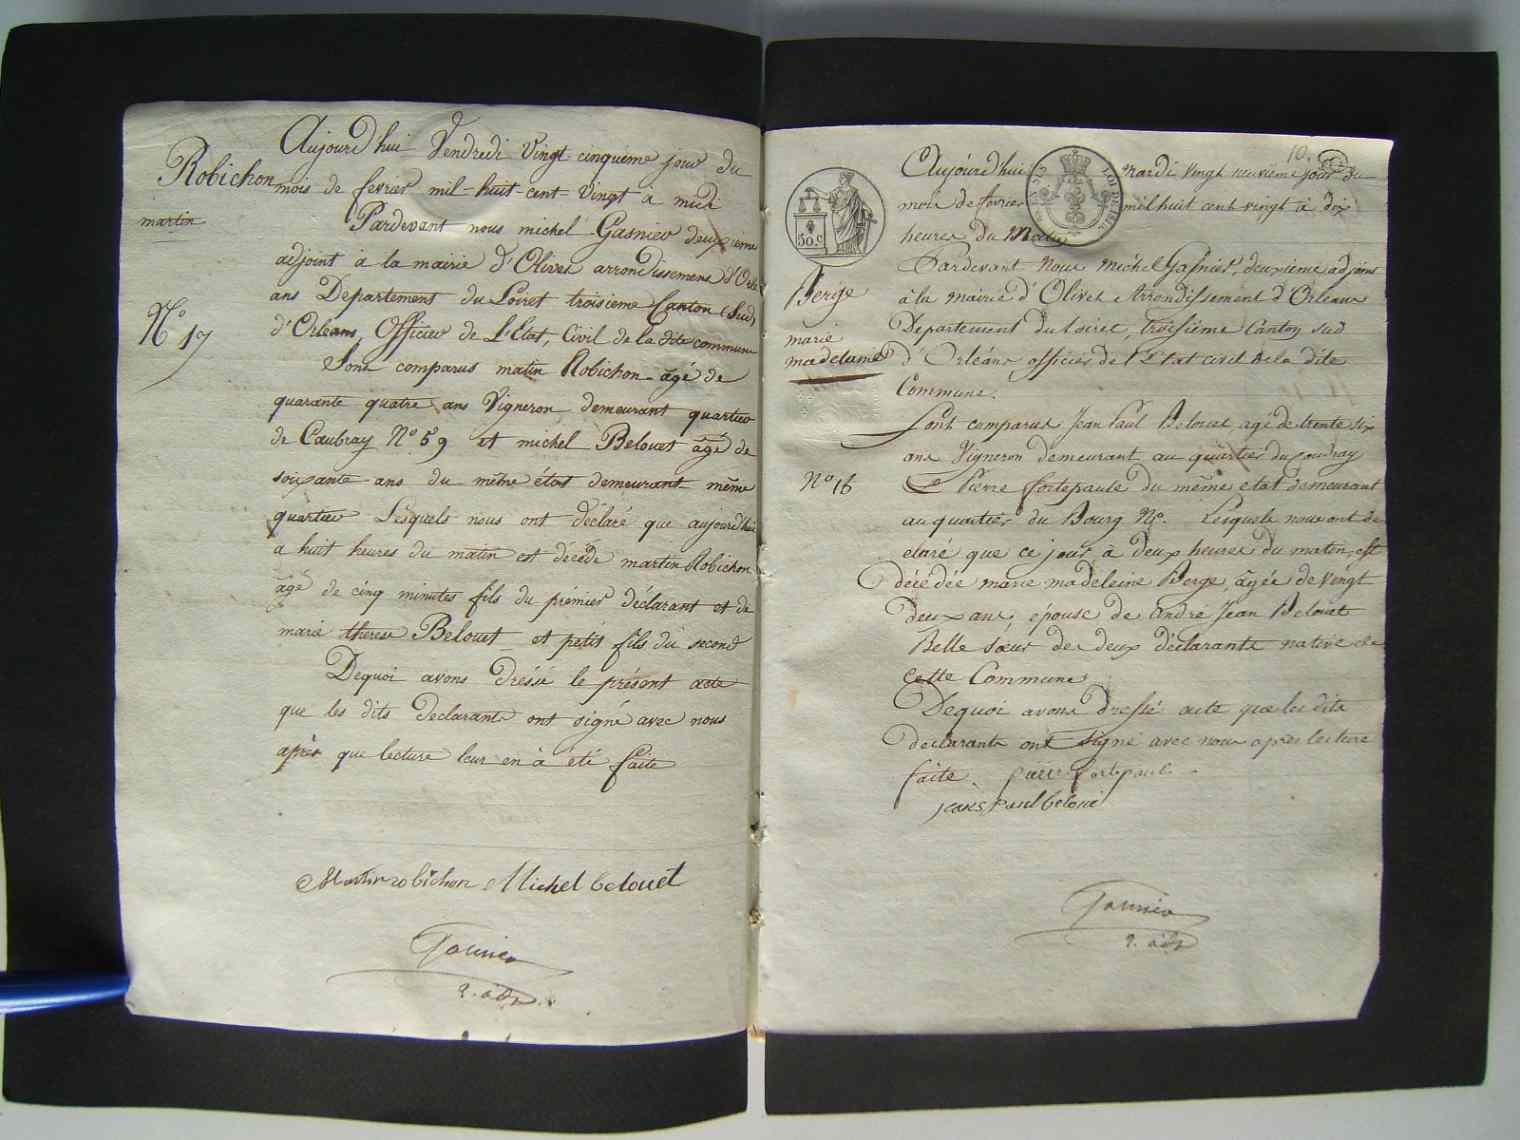 Robichon
martin
N.º 17
Aujourd'hui Vendredi Vingt cinquieme jour du
mois de fevrier mil-huit-cent-Vingt à midi
Pardevant nous michel Gasnier deuxieme
adjoint à la mairie d'Olivet arrondissement d'Orle
ans Departement du Loiret troisieme Canton (Sud)
d'Orleans, Officier de L'Etat, Civil de la dite commune
Sont comparus matin Robichon âgé de
quarante quatre ans Vigneron demeurant quartier
de Caubray Nº 59 et michel Belouet âgé de
soixante ans du même état demeurant même
quartier Lesquels nous ont déclaré que aujourdhui
a huit heures du matin est décédé martin Robichon
âgé de cinq minutes fils du prémier déclarant et de
marie therese Belouet et petit fils du second
Dequoi avons dréssé le présent acte
que les dits Declarants ont signé avec nous
après que lecture leur en à été faite
Martin robichon Michel belouet
Gasnier
2. adj.
10.
50 c
LOI DE 1816
Berge
marie
madeleine
Nº 18
Aujourd'hui mardi vingt neuvieme jour du
mois de fevrier mil huit cent vingt à dix
heures du Matin
Pardevant Nous Michel Gasnier, deuxieme adjoint
à la mairie d'Olivet Arrondissement d'Orleans
Departement du Loiret, troisieme Canton Sud
d'Orléans officier de l'Etat civil de la dite
Commune.
Sont comparus Jean Paul Belouet, agé de trente six
ans Vigneron demeurant au quartier du poudray
Et Pierre fortepaule du même etat demeurant
au quartier du Bourg Nº. Lesquels nous ont dé
claré que ce jour à deux heures du matin, est
décédée marie madeleine Berge, âgée de vingt
deux ans, épouse de andré Jean Belouet
Belle sœur de deux déclarants native de
cette Commune
Dequoi avons dressé acte que les dits
declarants ont signé avec nous apres lecture
faite. pierre fortepaule
jean Paul beloue
Gasnier
2. adj